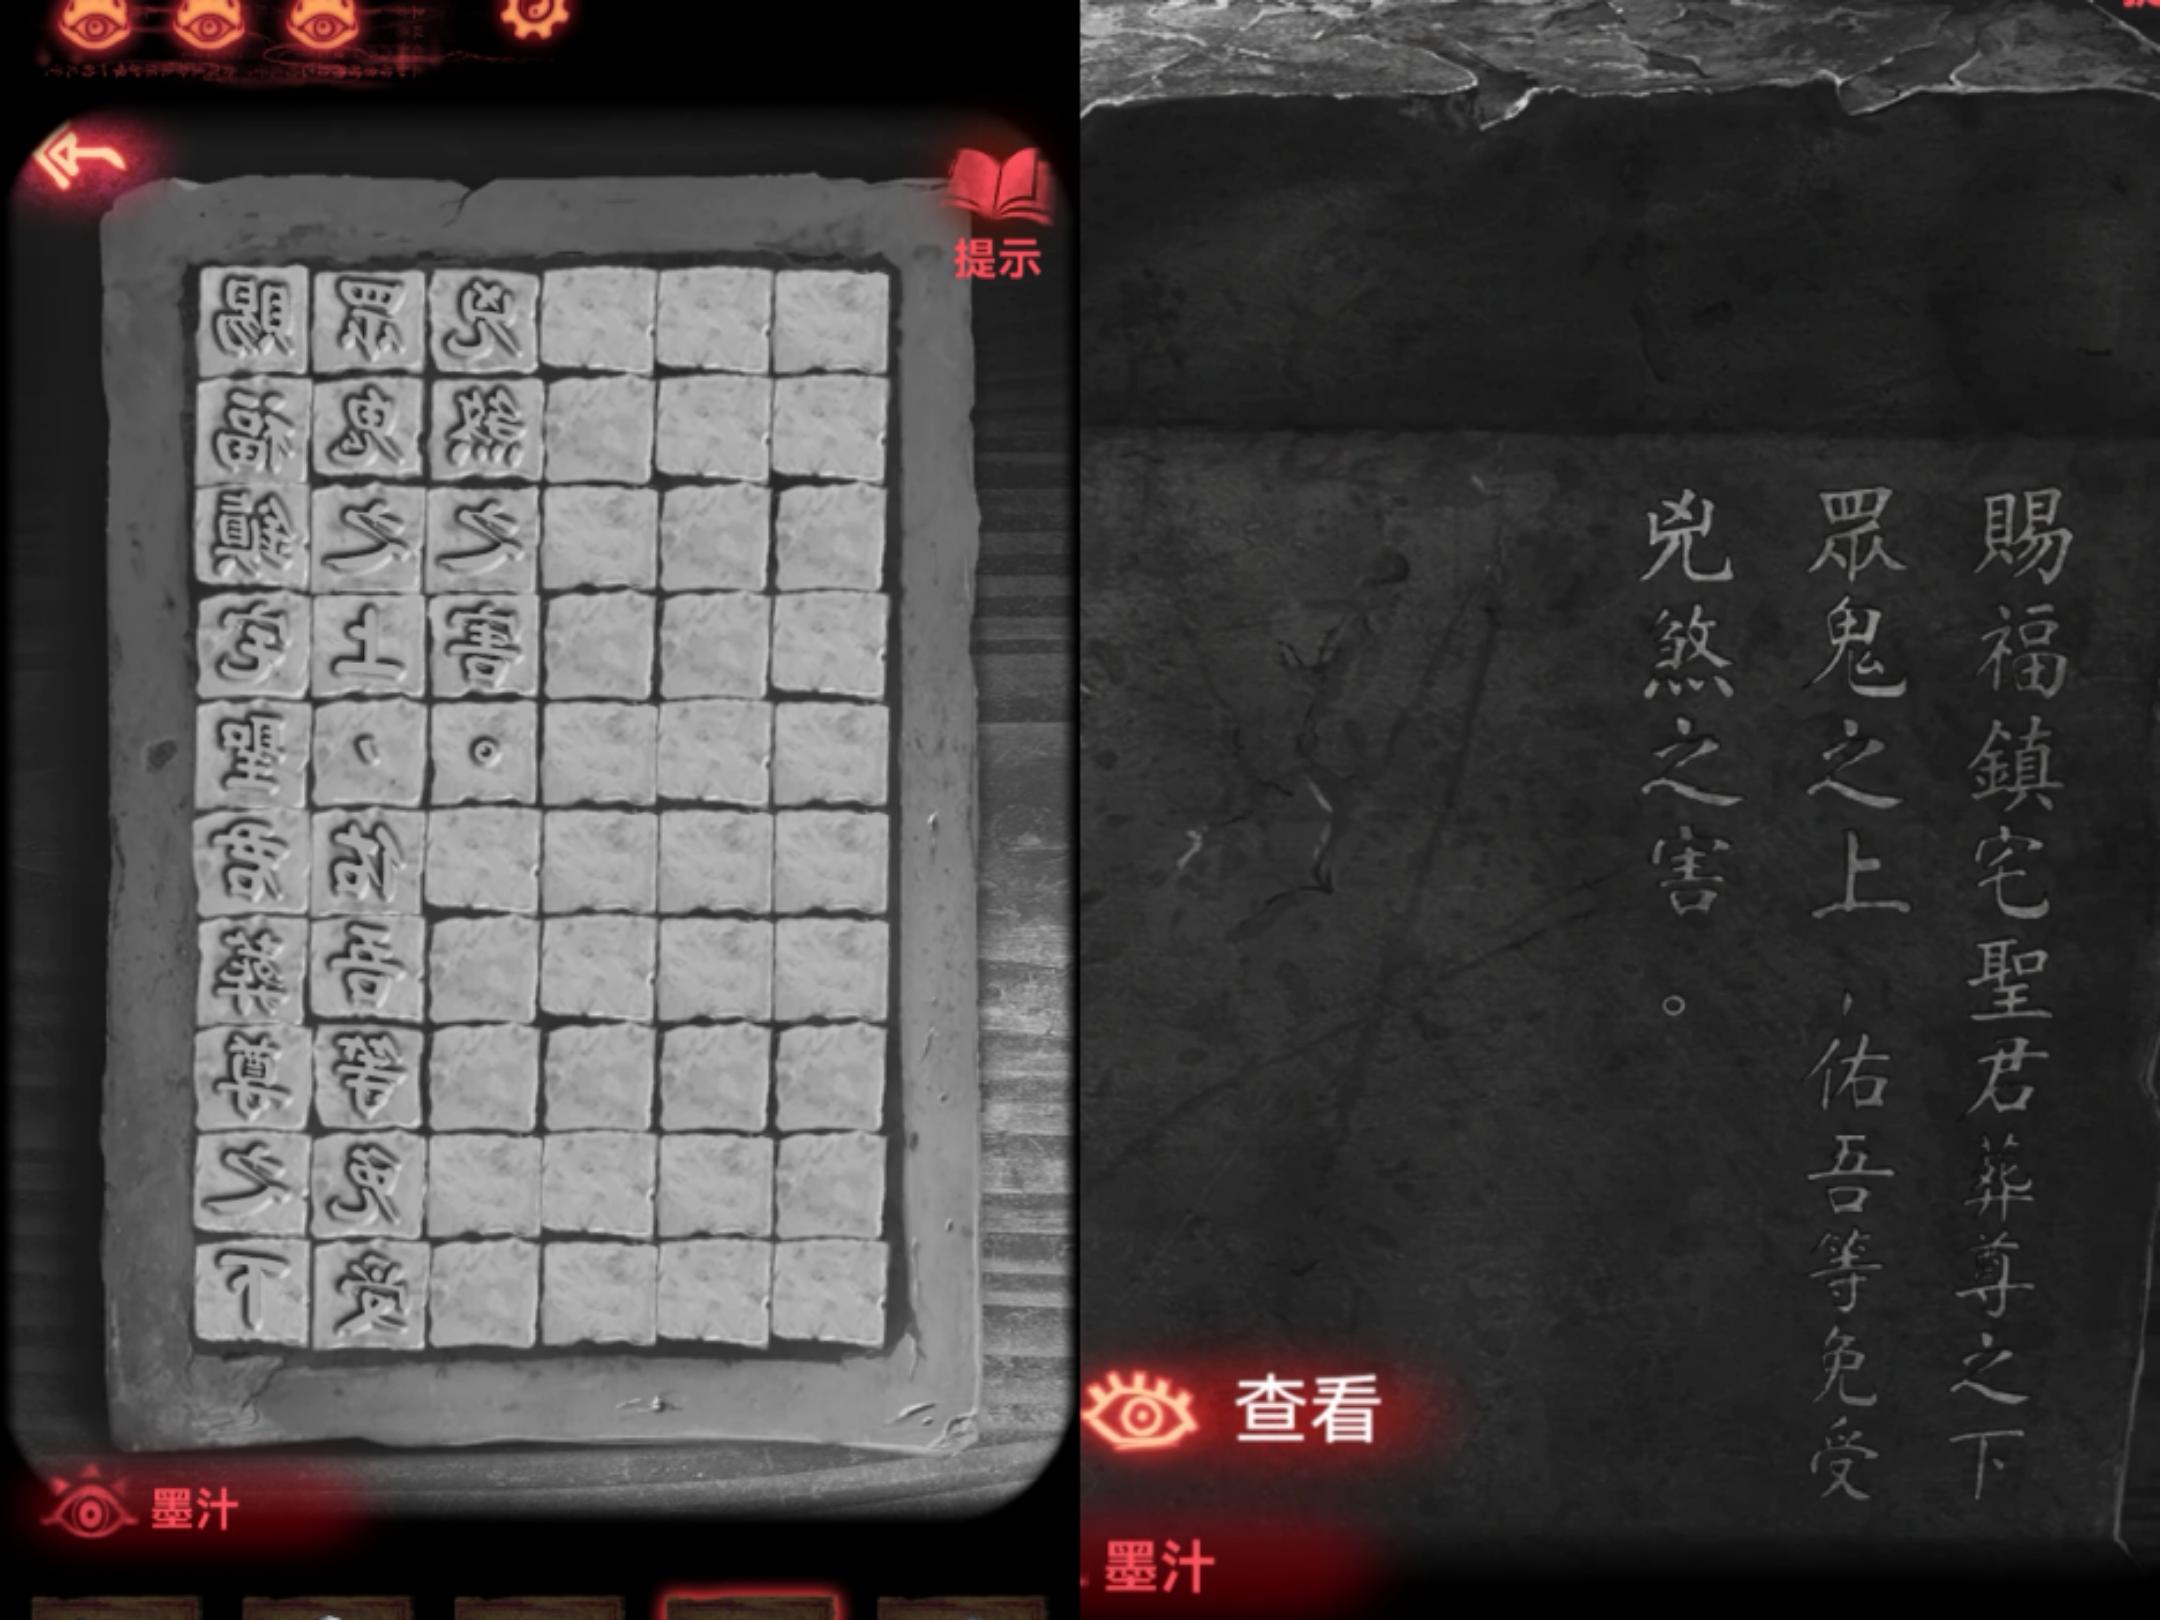 提示
賜福鎮宅聖君葬尊之下
眾鬼之上，佑吾等免受
兇煞之害。
墨汁
賜福鎮宅聖君葬尊之下
眾鬼之上，佑吾等免受
兇煞之害。
查看
墨汁